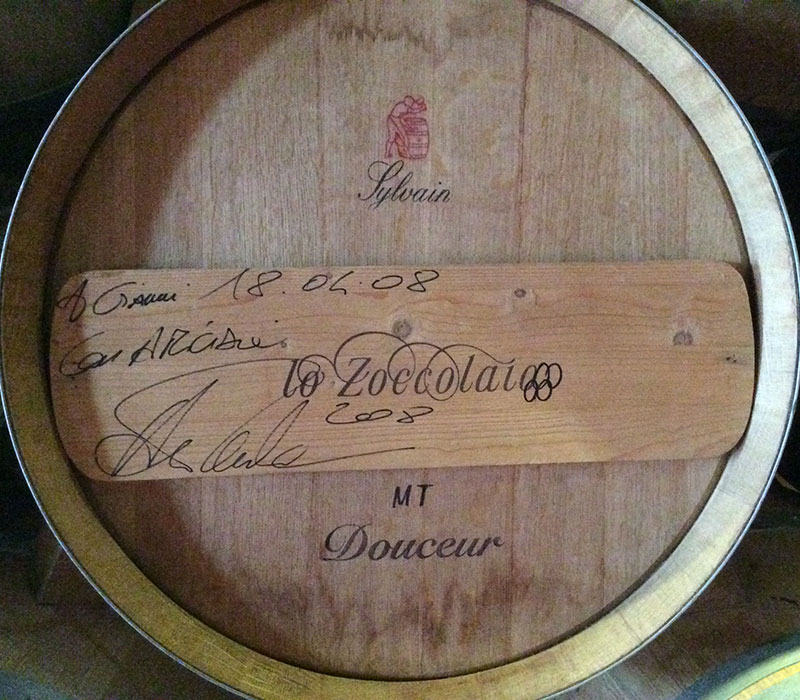 Sylvain
A Gianni 18.04.08
Con
lo Zoccolaio
2008
MT
Douceur